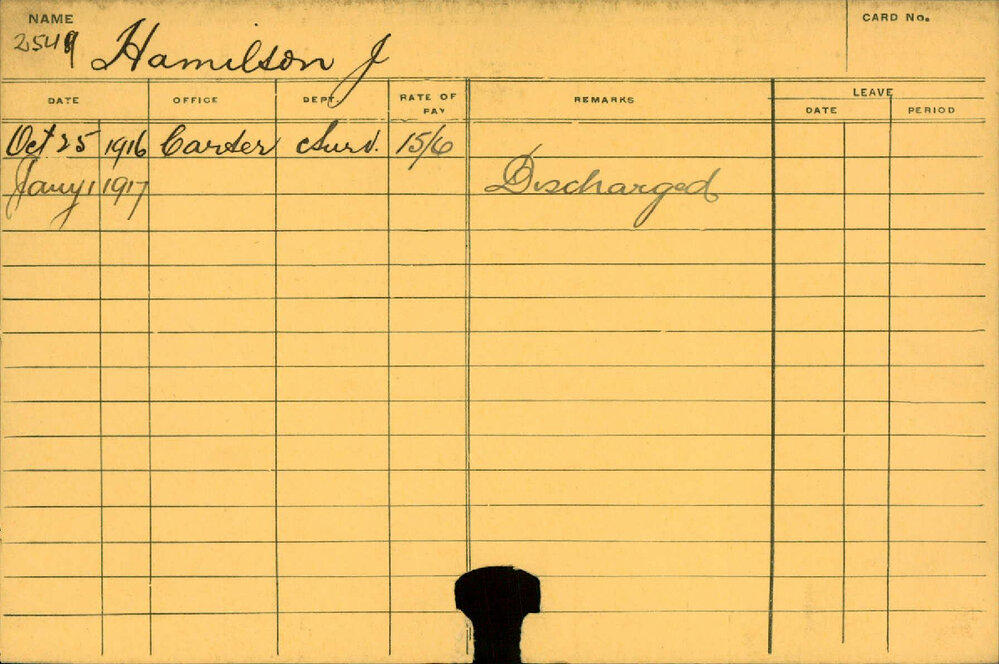 NAME
CARD No.
2549 Hamilson J
DATE OFFICE DEPT. RATE OF PAY REMARKS LEAVE
DATE PERIOD
Oct 25 1916 Carter 15/6
Jany 1 1917 Discharged